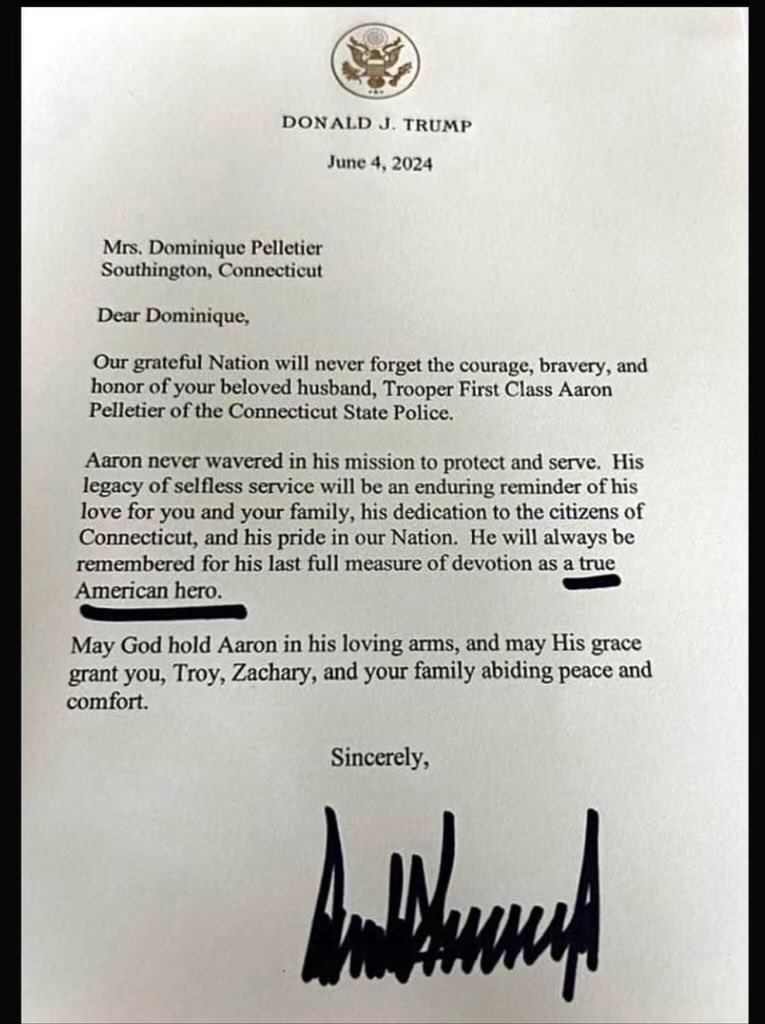 DONALD J. TRUMP
June 4, 2024
Mrs. Dominique Pelletier
Southington, Connecticut
Dear Dominique,
Our grateful Nation will never forget the courage, bravery, and
honor of your beloved husband, Trooper First Class Aaron
Pelletier of the Connecticut State Police.
Aaron never wavered in his mission to protect and serve.  His
legacy of selfless service will be an enduring reminder of his
love for you and your family, his dedication to the citizens of
Connecticut, and his pride in our Nation.  He will always be
remembered for his last full measure of devotion as a true
American hero.
May God hold Aaron in his loving arms, and may His grace
grant you, Troy, Zachary, and your family abiding peace and
comfort.
Sincerely,